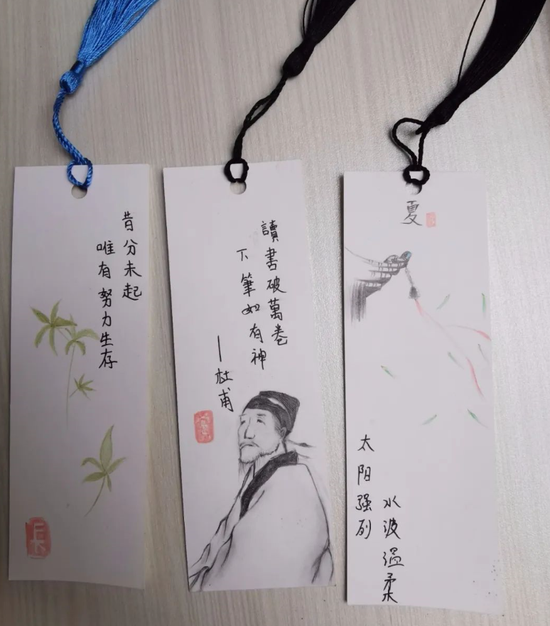 昔分未起
唯有努力生存
讀書破萬卷
下筆如有神
——杜甫
夏
太阳强列
水波温柔